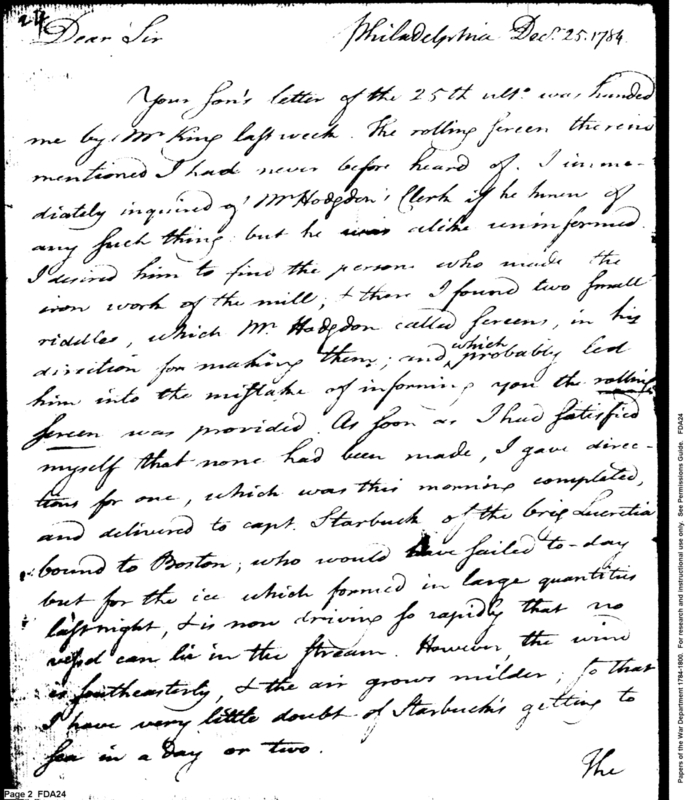 24
Dear Sir
Philadelphia Decr. 25. 1784
Your son's letter of the 25th ulto. was handed
me by Mr King last week. The rolling screen therein
mentioned I had never before heard of. I imme-
diately inquired of Mr Hodgdon's Clerk if he knew of
any such thing; but he was alike uninformed.
I desired him to find the persons who made the
iron work of the mill; & there I found two small
riddles, which Mr Hodgdon called screens, in his
direction for making them; and which probably led
him into the mistake of informing you the rolling
screen was provided. As soon as I had satisfied
myself that none had been made, I gave direc-
tions for one, which was this morning completed,
and delivered to capt. Starbuck of the brig Lucretia
bound to Boston; who would have sailed to-day
but for the ice which formed in large quantities
last night, & is now driving so rapidly that no
vessel can lie in the stream. However, the wind
is southeasterly, & the air grows milder; so that
I have very little doubt of Starbuck's getting to
sea in a day or two.
The
Page 2 FDA24
Papers of the War Department 1784-1800. For research and instructional use only. See Permissions Guide. FDA24